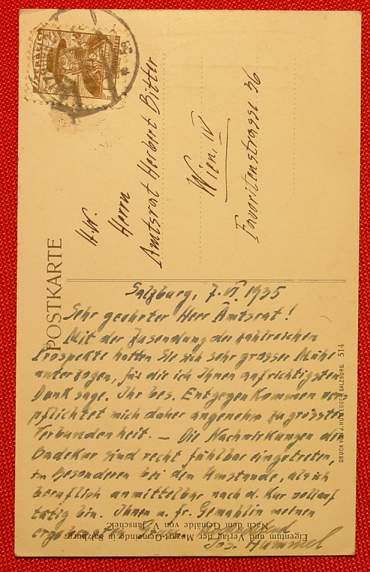 POSTKARTE
H.W.
Herrn
Amtsrat Herbert Bitter
Wien, IV
Favoritenstrasse 36
Salzburg, 7. VI. 1935
Sehr geehrter Herr Amtsrat!
Mit der Zusendung der zahlreichen
Prospekte hatten Sie sich sehr grosser Mühe
unterzogen, für die ich Ihnen aufrichtigsten
Dank sage. Ihr bes. Entgegenkommen ver-
pflichtet mich daher angenehm zu grösster
Verbundenheit. – Die Nachwirkungen der
Badekur sind recht fühlbar eingetreten,
im Besonderen bei dem Umstande, als ich
beruflich unmittelbar nach d. Kur vollauf
tätig bin. Ihnen u. fr. Gemahlin meinen
ergebensten
Jos. Hummel
Eigentum und Verlag der Mozart-Gemeinde in Salzburg
Nach dem Gemälde von Janschek
DRUCK VON J. HUTTEGGER SALZBURG 514